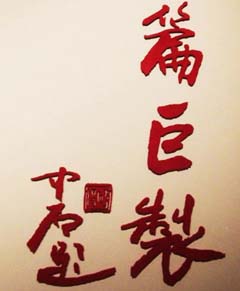 篇巨製
中石題